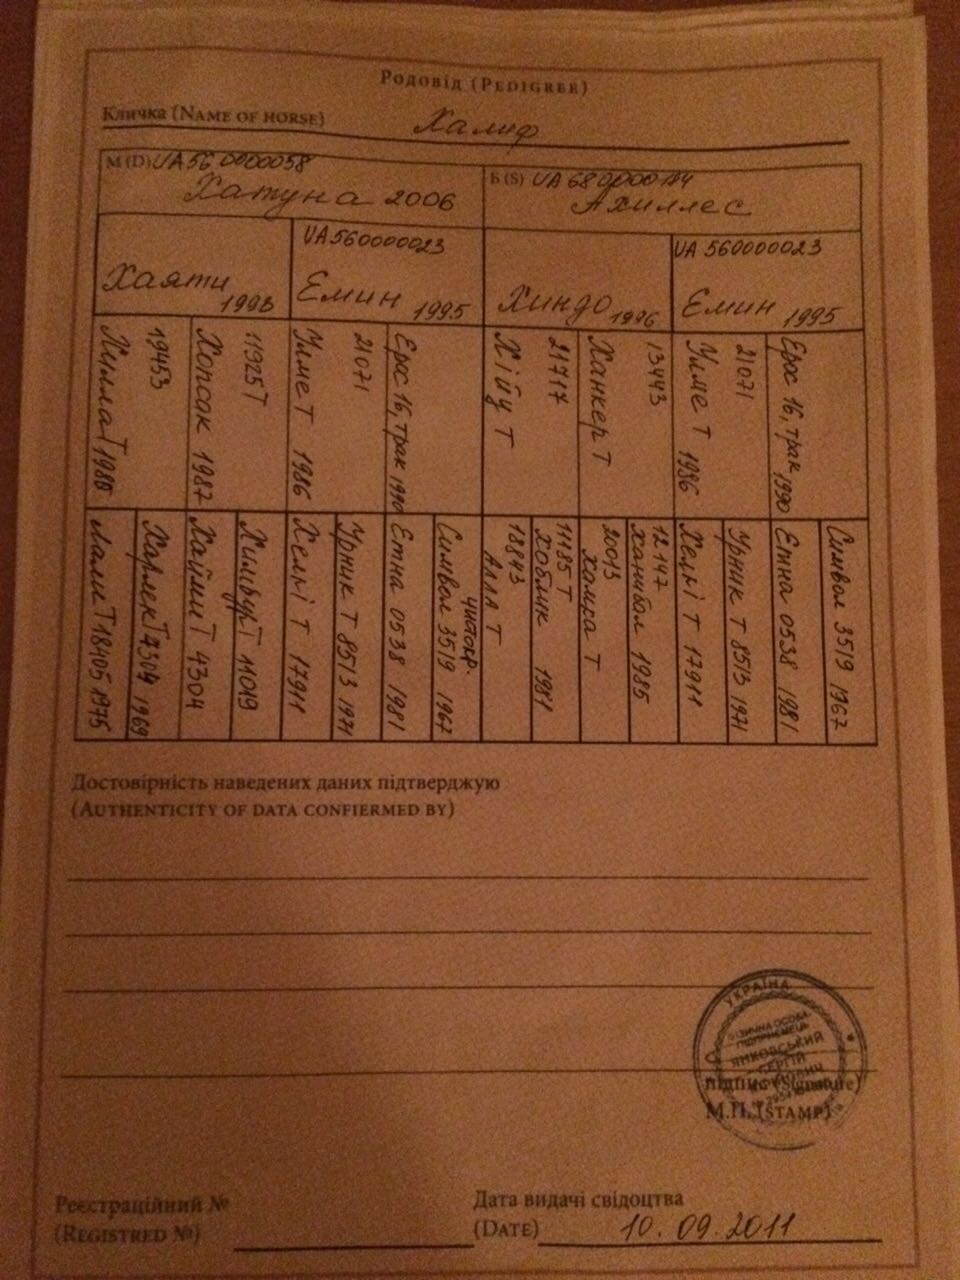 Родовід (Pedigree)
Кличка (Name of horse) Халиф
М (D) UA560000058
Хатуна 2006
Б (S) UA
Ахиллес
Хаяти
UA560000023
Емин 1995
Хиндо 1996
UA 560000023
Емин 1995
1980
19453
Хопсак 1987
11925Т
Улмет 1986
21071
Ерос 16, трак 1990
Хійу Т
21717
Ханкер Т
13443
Улме Т 1986
21071
Ерос 16, трак 1990
Лали Т 18405 1975
Т 1969
Хайми Т 4304
Т 11019
Хельі Т 17911
Урник Т 8513 1971
Етна 0538 1981
чистокр.
Символ 3519 1967
18843
Алла Т
11185 Т
Хоблик 1981
20013
Хамра Т
12147
Ханибал 1985
Хельі Т 17911
Урник Т 8513 1971
Етна 0538 1981
Символ 3519 1967
Достовірність наведених даних підтверджую
(Authenticity of data confiermed by)
УКРАЇНА
ФІЗИЧНА ОСОБА
ПІДПРИЄМЕЦЬ
ЯНКОВСЬКИЙ
СЕРГІЙ
підпис (Signature)
М.П. (stamp)
Реєстраційний №
(Registred №)
Дата видачі свідоцтва
(Date) 10.09.2011